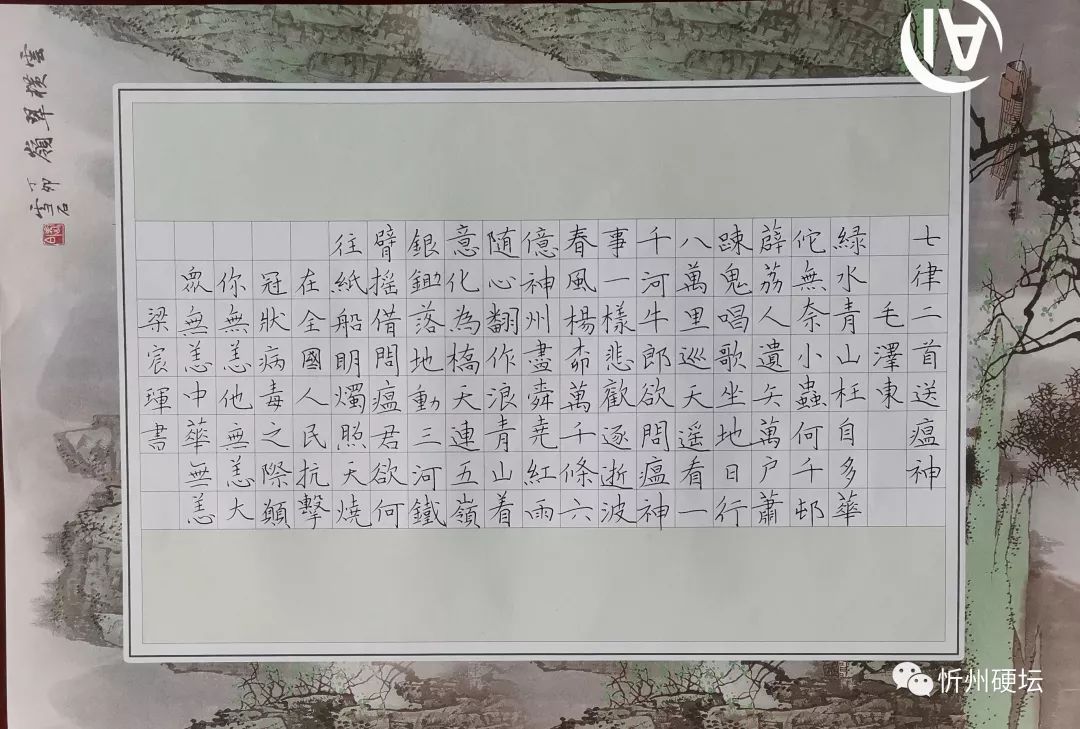 七律二首送瘟神
毛澤東
緑水青山枉自多華
佗無奈小蟲何千邨
薜荔人遺矢萬户蕭
踈鬼唱歌坐地日行
八萬里巡天遥看一
千河牛郎欲問瘟神
事一樣悲歡逐逝波
春風楊桺萬千條六
億神州盡舜堯紅雨
随心翻作浪青山着
意化為橋天連五嶺
銀鋤落地動三河鐵
臂摇借問瘟君欲何
往紙船明燭照天燒
在全國人民抗擊
冠狀病毒之際願
你無恙他無恙大
眾無恙中華無恙
梁宸琿書
雲横翠嶺
丁卯
雪石
AI
忻州硬坛